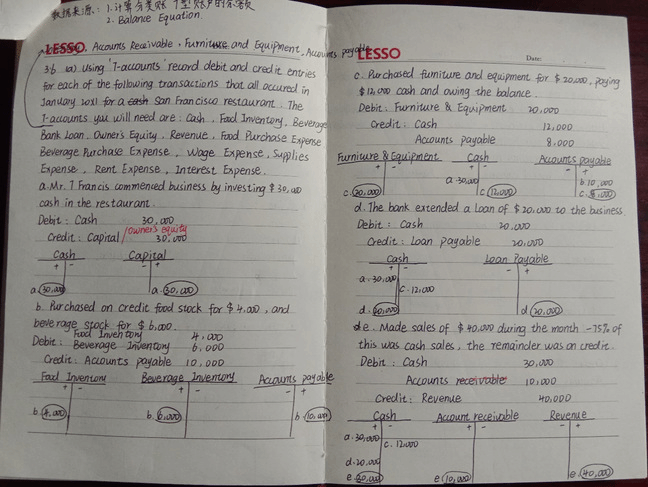 数据来源：1.计算分类账 T型账户的余额
2. Balance Equation
LESSO. Accounts Receivable, Furniture and Equipment, Accounts payable
3.6 (a) Using 'T-accounts' record debit and credit entries
for each of the following transactions that all occured in
January 20x1 for a San Francisco restaurant. The
T-accounts you will need are: Cash, Food Inventory, Beverage
Bank Loan, Owner's Equity, Revenue, Food Purchase Expense
Beverage Purchase Expense, Wage Expense, Supplies
Expense, Rent Expense, Interest Expense.
a. Mr. T Francis commenced business by investing $30,000
cash in the restaurant.
Debit: Cash 30,000
Credit: Capital / owner's equity 30,000
Cash Capital
+ - - +
a. 30,000 a. 30,000
b. Purchased on credit food stock for $4,000, and
beverage stock for $6,000.
Debit: Food Inventory 4,000
Beverage Inventory 6,000
Credit: Accounts payable 10,000
Food Inventory Beverage Inventory Accounts payable
+ - + - - +
b. 4,000 b. 6,000 b. 10,000
LESSO
Date:
c. Purchased furniture and equipment for $20,000, paying
$12,000 cash and owing the balance.
Debit: Furniture & Equipment 20,000
Credit: Cash 12,000
Accounts payable 8,000
Furniture & Equipment Cash Accounts payable
+ - + - - +
a. 30,000 b. 10,000
c. 20,000 c. 12,000 c. 8,000
d. The bank extended a Loan of $20,000 to the business.
Debit: Cash 20,000
Credit: Loan payable 20,000
Cash Loan Payable
+ - - +
a. 30,000
c. 12,000
d. 20,000 d. 20,000
e. Made sales of $40,000 during the month - 75% of
this was cash sales, the remainder was on credit.
Debit: Cash 30,000
Accounts receivable 10,000
Credit: Revenue 40,000
Cash Account receivable Revenue
+ - + - - +
a. 30,000 c. 12,000
d. 20,000
e. e. 10,000 e. 40,000